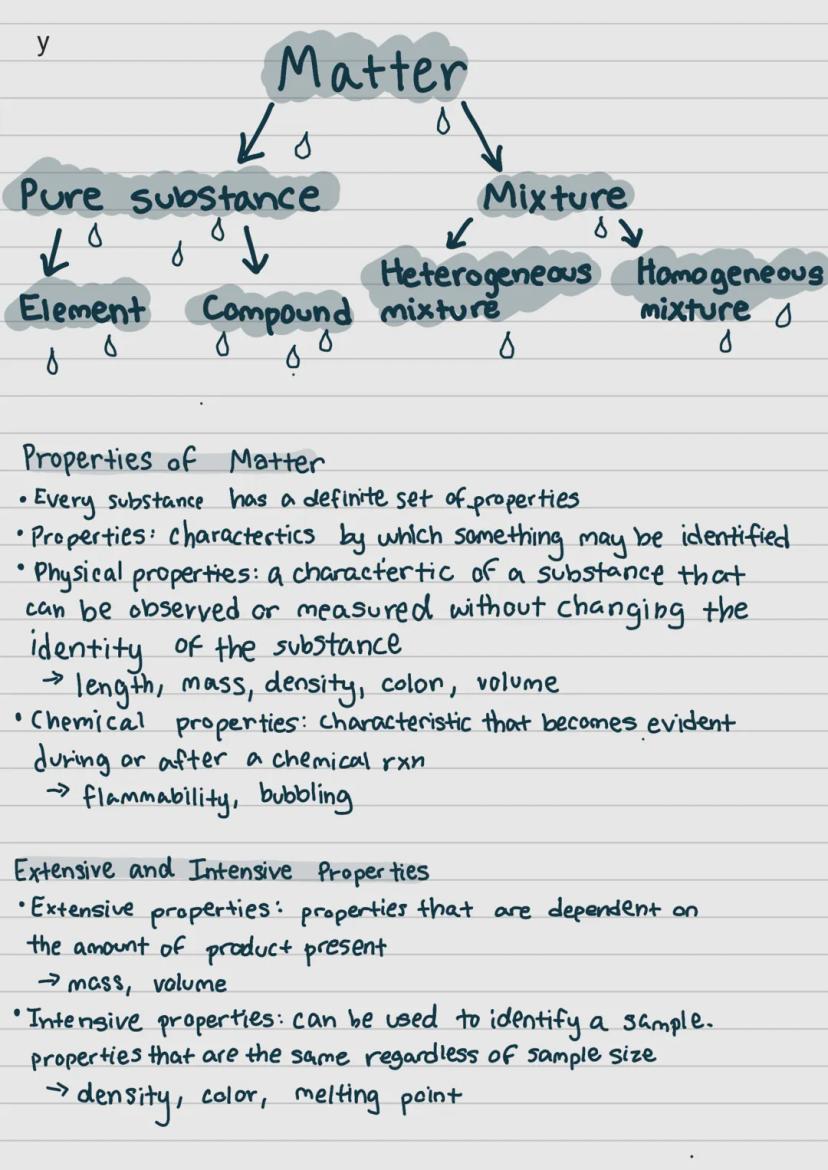 y
Matter
Pure substance
Mixture
Element
Compound
Heterogeneous
mixture
Homogeneous
mixture
Properties of Matter
• Every substance has a definite set of properties
• Properties: charactertics by which something may be identified
• Physical properties: a charactertic of a substance that
can be observed or measured without changing the
identity of the substance
→ length, mass, density, color, volume
• Chemical properties: characteristic that becomes evident
during or after a chemical rxn
→ flammability, bubbling
Extensive and Intensive Properties
• Extensive properties: properties that are dependent on
the amount of product present
→ mass, volume
• Intensive properties: can be used to identify a sample.
properties that are the same regardless of sample size
→ density, color, melting point